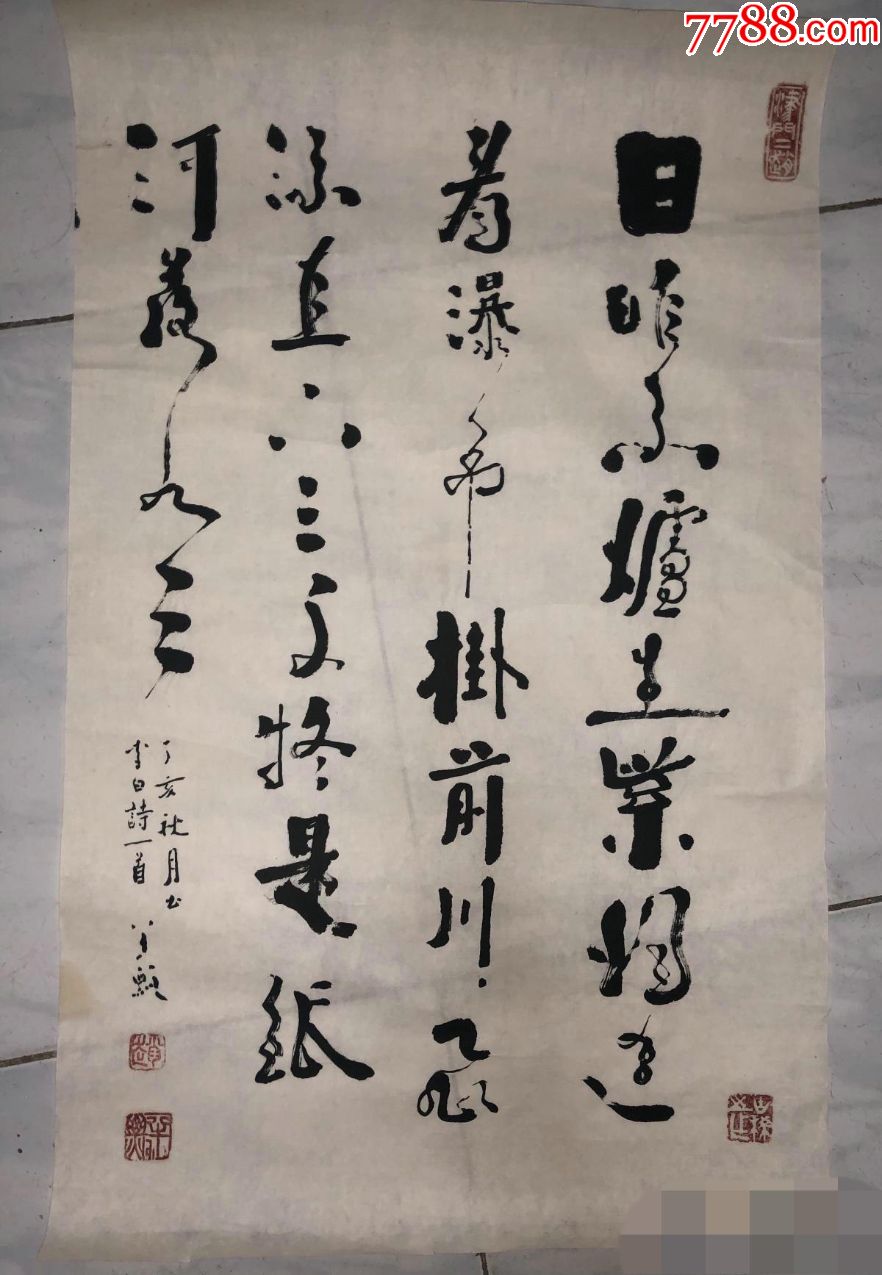 7788.com
日照香爐生紫煙遥
看瀑布掛前川飛
流直下三千尺疑是銀
河落九天
丁亥秋月书
李白詩一首